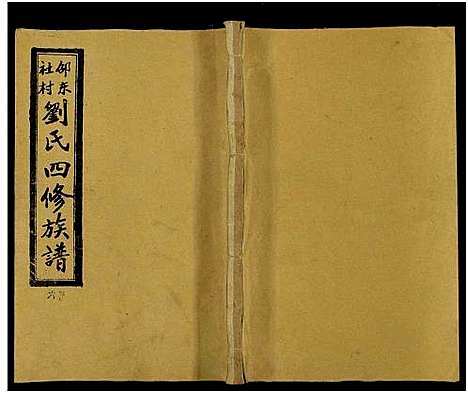 邵东
社村
劉氏四修族譜